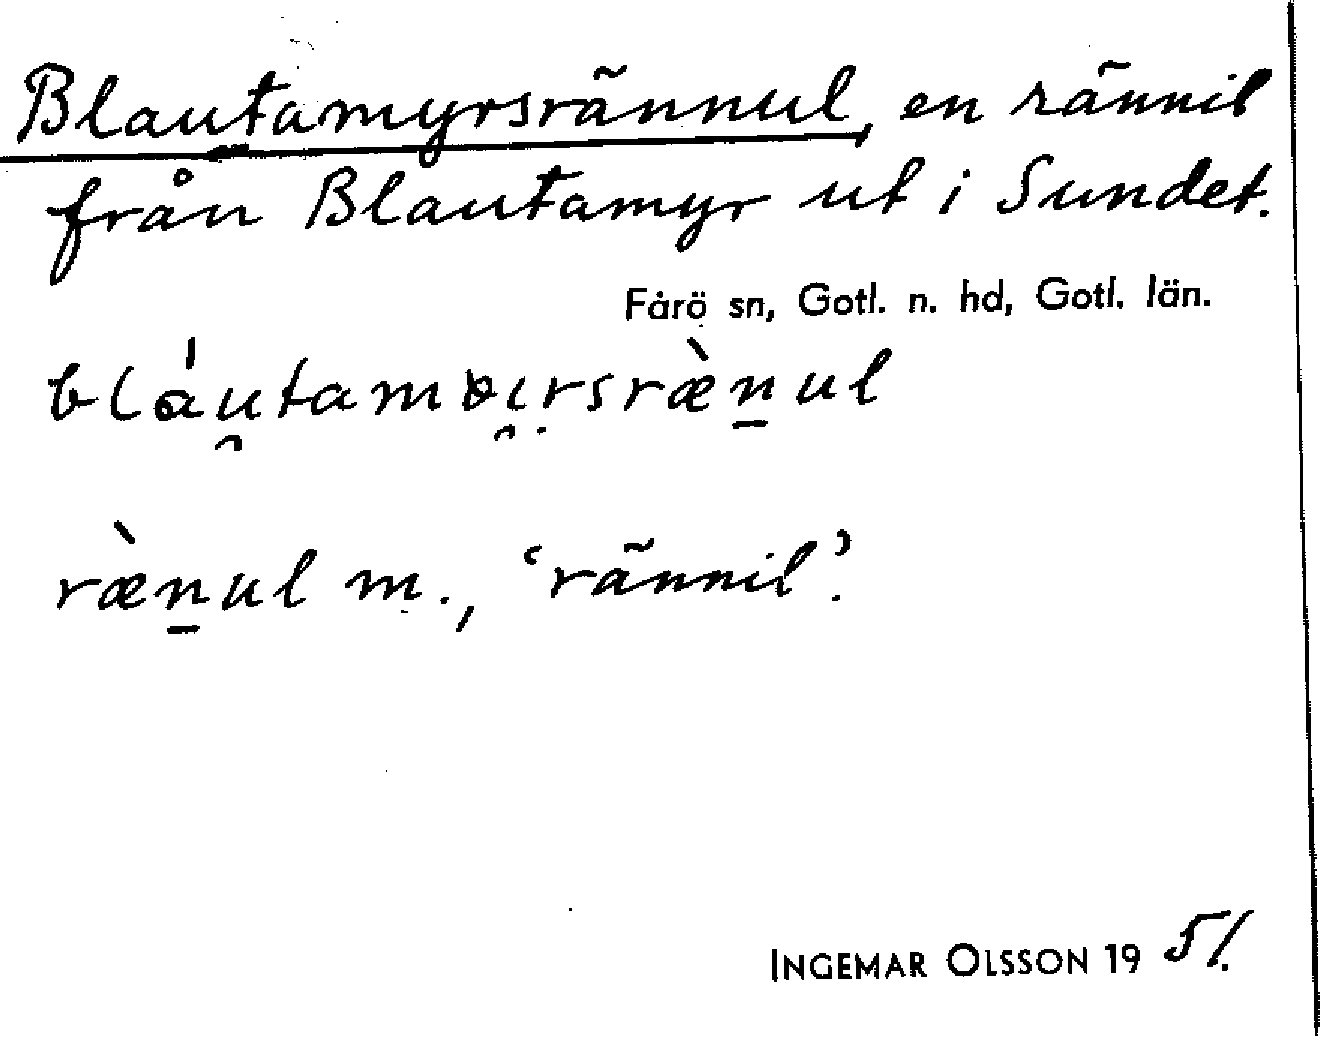 Blautamyrsrännul, en rännil
från Blautamyr ut i Sundet.
Fårö sn, Gotl. n. hd, Gotl. län.
ræ̀n̠ul m., ‘rännil’.
INGEMAR OLSSON 19 51.